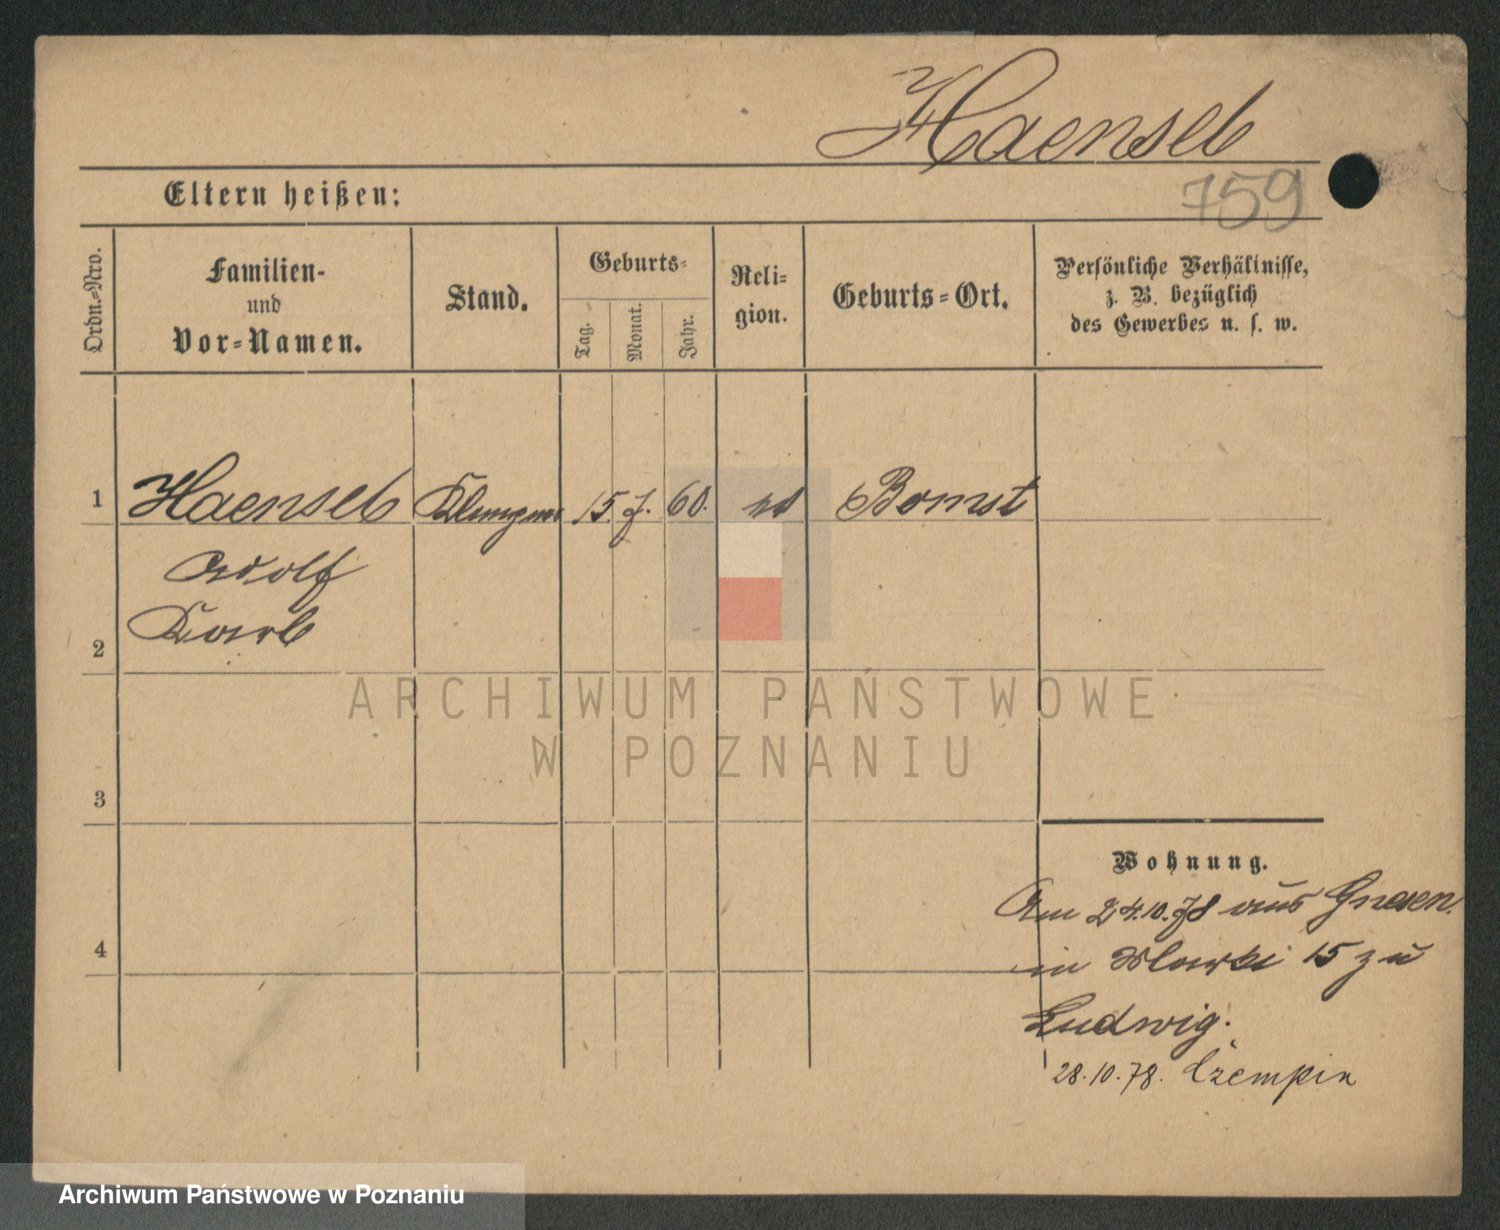 Haensel
759
Eltern heißen:
Ordn.-Nro.
Familien-
und
Vor-Namen.
Stand.
Geburts-
Tag.
Monat.
Jahr.
Reli-
gion.
Geburts-Ort.
Persönliche Verhältnisse,
z. B. bezüglich
des Gewerbes u. s. w.
1 Haensel 15. 7. 60. Bomst
Adolf
Karl
2
ARCHIWUM PAŃSTWOWE
W POZNANIU
3
Wohnung.
Am 24.10.78 aus Gnesen.
4
in 15 zu
Ludwig.
28.10.78. Czempin
Archiwum Państwowe w Poznaniu